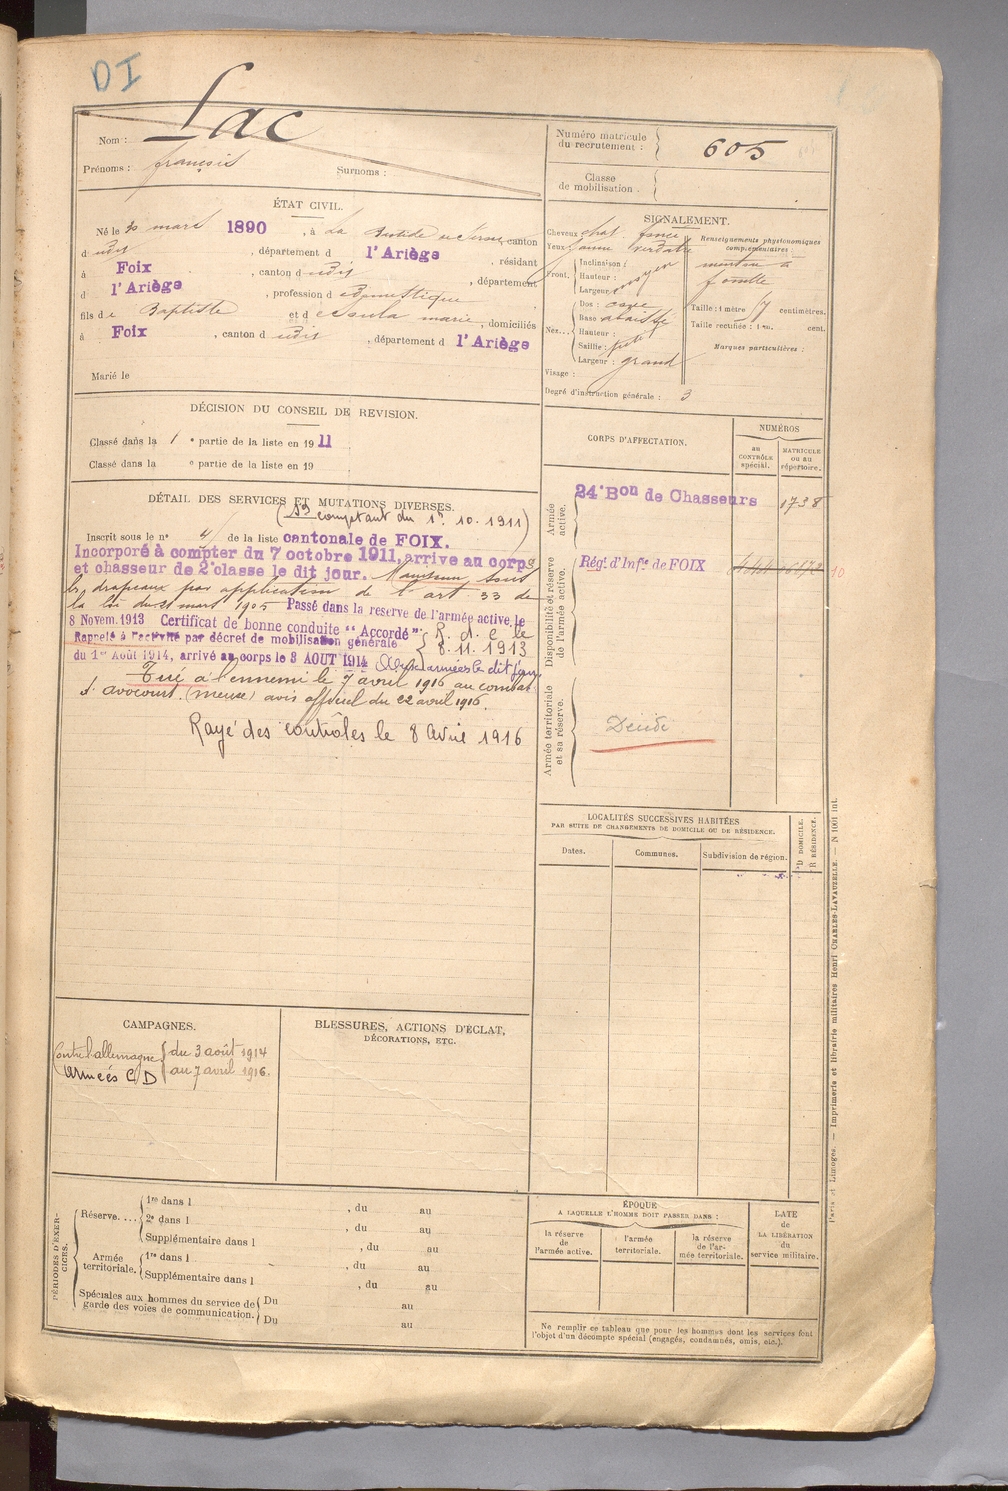 DI
Nom : Lac
Prénoms : françois Surnoms :
Numéro matricule du recrutement : 605
Classe de mobilisation :
ÉTAT CIVIL.
Né le 30 mars 1890, à La Bastide de Sérou, canton
d udit, département d l'Ariège, résidant
à Foix, canton d udit, département
d l'Ariège, profession d domestique
fils de Baptiste et d marie, domiciliés
à Foix, canton d udit, département d l'Ariège
Marié le
SIGNALEMENT.
Cheveux chat. foncé
Yeux jaune verdâtre
Front. Inclinaison :
Hauteur : moyen
Largeur :
Nez. Dos : cave
Base abaissé
Hauteur :
Saillie : petite
Largeur : grand
Visage :
Renseignements physionomiques complémentaires :
menton à
Taille : 1 mètre centimètres.
Taille rectifiée : 1 m. cent.
Marques particulières :
Degré d'instruction générale : 3
DÉCISION DU CONSEIL DE REVISION.
Classé dans la 1 e partie de la liste en 1911
Classé dans la e partie de la liste en 19
DÉTAIL DES SERVICES ET MUTATIONS DIVERSES.
(Sce comptant du 1er 10.1911)
Inscrit sous le n° 4 de la liste cantonale de FOIX.
Incorporé à compter du 7 octobre 1911, arrive au corps
et chasseur de 2e classe le dit jour. Maintenu sous
les drapeaux par application de l'art 33 de
la loi du 21 mars 1905 Passé dans la reserve de l'armée active, le
8 Novem. 1913 Certificat de bonne conduite "Accordé" R. d. c le
Rappelé à l'activité par décret de mobilisation générale 8.11.1913
du 1er Août 1914, arrivé au corps le 3 AOUT 1914 Aux armées le dit jour
Tué à l'ennemi le 7 avril 1916 au combat
d'avocourt (meuse) avis officiel du 22 avril 1916.
Rayé des contrôles le 8 Avril 1916
CORPS D'AFFECTATION.
NUMÉROS
au CONTRÔLE spécial.
MATRICULE ou au répertoire.
Armée active.
24e Bon de Chasseurs 1738
Disponibilité et réserve de l'armée active.
Rég. d'Infie de FOIX
Armée territoriale et sa réserve.
Décédé
LOCALITÉS SUCCESSIVES HABITÉES
PAR SUITE DE CHANGEMENTS DE DOMICILE OU DE RÉSIDENCE.
Dates. Communes. Subdivision de région. D DOMICILE. R RÉSIDENCE.
CAMPAGNES.
Contre l'allemagne du 3 août 1914
Armées C D au 7 avril 1916.
BLESSURES, ACTIONS D'ÉCLAT,
DÉCORATIONS, ETC.
PÉRIODES D'EXERCICES.
Réserve.... 1re dans l , du au
2e dans l , du au
Supplémentaire dans l , du au
Armée territoriale. 1re dans l , du au
Supplémentaire dans l , du au
Spéciales aux hommes du service de garde des voies de communication. Du au
Du au
ÉPOQUE
A LAQUELLE L'HOMME DOIT PASSER DANS :
la réserve de l'armée active.
l'armée territoriale.
la réserve de l'armée territoriale.
DATE de LA LIBÉRATION du service militaire.
Ne remplir ce tableau que pour les hommes dont les services font
l'objet d'un décompte spécial (engagés, condamnés, omis, etc.).
Paris et Limoges. — Imprimerie et librairie militaires Henri CHARLES-LAVAUZELLE. — N 1001 int.